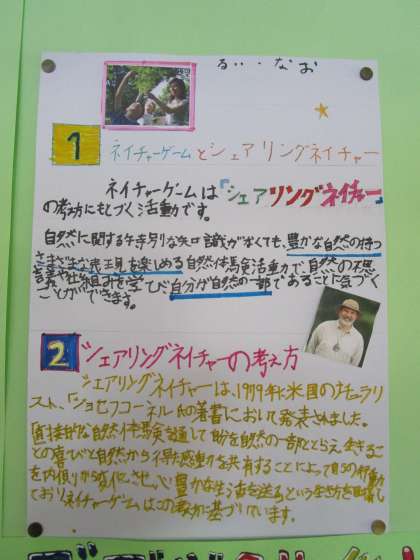 るい・なお
1 ネイチャーゲームとシェアリングネイチャー
ネイチャーゲームは「シェアリングネイチャー」
の考え方にもとづく活動です。
自然に関する特別な知識がなくても、豊かな自然の持つ
さまざまな表情を楽しめる自然体験活動で、自然の不思
議や仕組みを学び、自分が自然の一部であることに気づく
ことができます。
2 シェアリングネイチャーの考え方
シェアリングネイチャーは、1979年に米国のナチュラリ
スト、「ジョセフコーネル氏の著書において発表されました。
直接的な自然体験を通して自分を自然の一部ととらえ、生きるこ
との喜びと自然から得た感動を共有することによって自らの行動
を内側から変化させ、心豊かな生活を送るという生き方を目指し
ておりネイチャーゲームはこの考え方に基づいています。